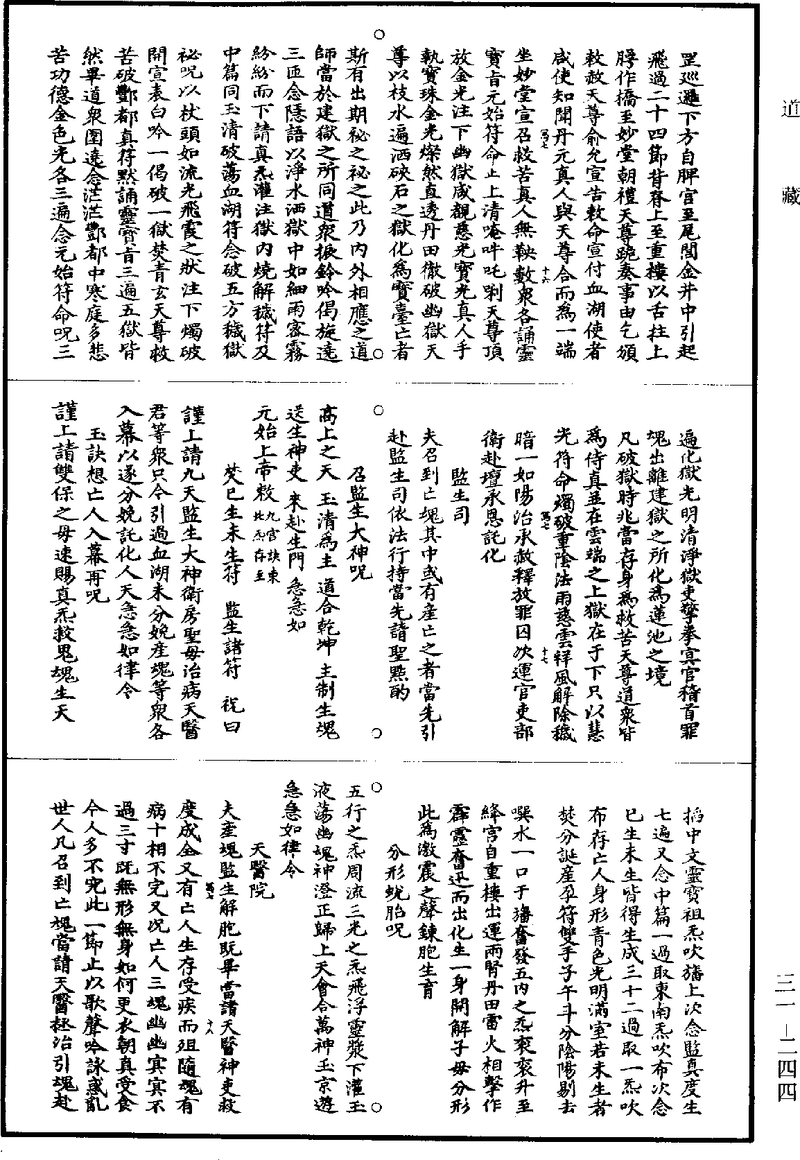 道藏
三一—二四四
罡巡遍下方自脾宮至尾閭金井中引起
飛過二十四節背脊上至重樓以舌柱上
腭作橋至妙堂朝禮天尊跪奏事由乞頒
敕赦天尊俞允宣告敕命宣付血湖使者
咸使知聞丹元真人與天尊合而為一端
坐妙堂宣召救苦真人無鞅數眾各誦靈
寶肯元始符命止上清唵吽吒唎天尊頂
放金光注下幽獄咸覩慈光寶光真人手
執寶珠金光燦然真透丹田徹破幽獄天
尊以枝水遍洒硤石之獄化為寶臺亡者
斯有出期祕之祕之此乃內外相應之道
師當於建獄之所同道眾振鈴吟偈旋遶
三匝念隱語以淨水洒獄中如細雨密霧
紛紛而下請真炁灌注獄內燒解穢符及
中篇同玉清破蕩血湖符念破五方穢獄
祕呪以杖頭如流光飛霞之狀注下燭破
開宣表白吟一偈破一獄焚青玄天尊救
苦破酆都真符默誦靈寶肯三遍五獄皆
然畢道眾圍遶念茫茫酆都中寒庭多悲
苦功德金色光各三遍念元始符命呪三
遍化獄光明清淨獄吏擎拳冥官稽首罪
魂出離建獄之所化為蓮池之境
凡破獄時兆當存身為救苦天尊道眾皆
為侍真並在雲端之上獄在于下只以慧
光符命燭破重陰法雨慈雲祥風解除穢
暗一如陽治承赦釋放罪囚次運官吏部
衛赴壇承恩託化
監生司
夫召到亡魂其中或有產亡之者當先引
赴監生司依法行持當先請聖黙酌
召監生大神呪
高上之天 玉清為主 道合乾坤 主制生魂
送生神吏 來赴生門 急急如
元始上帝敕 九宮訣東北炁存至
焚已生未生符 監生諸符 祝曰
謹上請九天監生大神衛房聖母治病天醫
君等眾只今引過血湖未分娩產魂等眾各
入幕以遂分娩託化人天急急如律令
玉訣想亡人入幕再呪
謹上請雙保之母速賜真炁救鬼魂生天
搯中文靈寶祖炁吹旛上次念監真度生
七遍又念中篇一過取東南炁吹布次念
已生未生皆得生成三十二過取一炁吹
布存亡人身形青色光明滿室若未生者
焚分誕產孕符雙手子午斗分陰陽剔去
噀水一口于旛奮發五內之炁衮衮升至
絳宮自重樓出運兩腎丹田雷火相擊作
霹靂奮迅而出化生一身開解子母分形
此為激震之聲鍊胞生育
分形蛻胎呪
五行之炁周流三光之炁飛浮靈漿下灌玉
液蕩幽魂神澄正歸上天會合萬神玉京遊
急急如律令
天醫院
夫產魂監生解胞既畢當請天醫神吏救
度成全又有亡人生存受疾而殂隨魂有
病十相不完又況亡人三魂幽幽冥冥不
過三寸既無形無身如何更衣朝真受食
今人多不究此一節止以歌聲吟詠惑亂
世人凡召到亡魂當請天醫拯治引魂赴